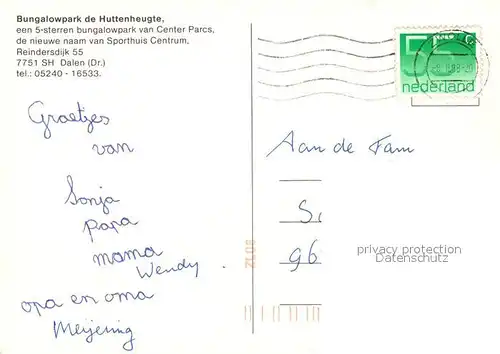 Bungalowpark de Huttenheugte,
een 5-sterren bungalowpark van Center Parcs,
de nieuwe naam van Sporthuis Centrum,
Reindersdijk 55
7751 SH Dalen (Dr.)
tel.: 05240 - 16533.
Groetjes
van
Sonja
papa
mama
Wendy.
opa en oma
Meijering
55 c
nederland
Aan de Fam
S.
96
privacy protection
Datenschutz